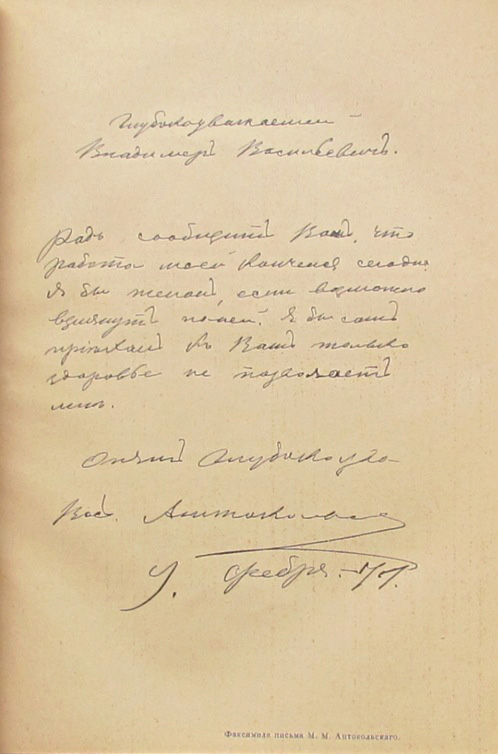 Глубокоуважаемый
Владимеръ Васильевичъ.
Радъ сообщить Вамъ, что
работа моей кончена сегодня
Я бы желалъ, если возможно
взглянуть на ней. Я бы самъ
пріѣхалъ къ Вамъ только
здоровье не позволяетъ
мнѣ.
глубокоува-
Вас. Антокольск
Февра. 77.
Факсимиле письма М. М. Антокольскаго.